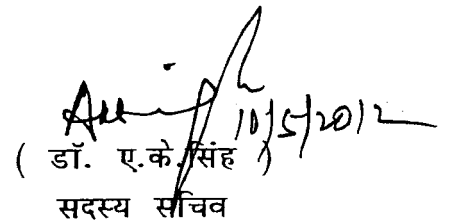 10/5/2012
( डॉ. ए.के.सिंह )
सदस्य सचिव